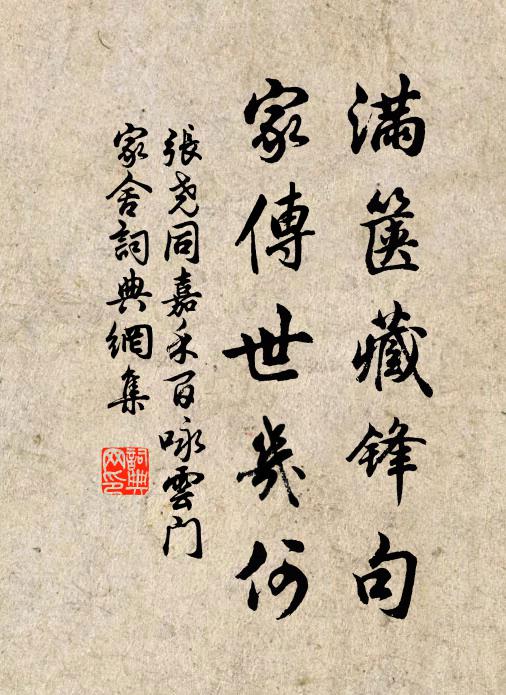 滿篋藏锋句
家傳世幾何
張尧同嘉禾百咏雲门
家舍詞典網集
詞典
网印